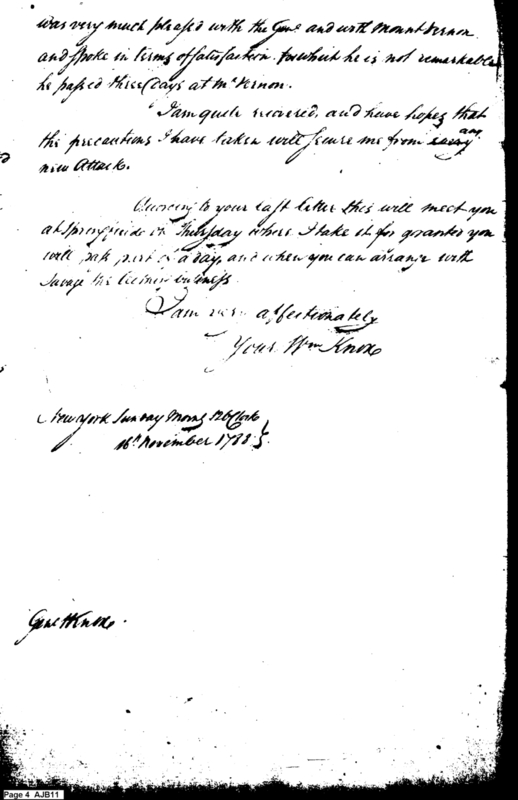 was very much pleased with the Genl and with Mount Vernon
and spoke in terms of satisfaction for which he is not remarkable
he passed three Days at Mt Vernon.
I am quite recovered, and have hopes that
the precautions I have taken will secure me from any
new Attack.
According to your last letter this will meet you
at Springfield on Thursday where I take it for granted you
will pass part of a day, and when you can arrange with
Savage the business
I am very affectionately
Your Wm Knox
New York Sunday Morng 12 oClock
16h November 1788
Genl H Knox.
Page 4 AJB11